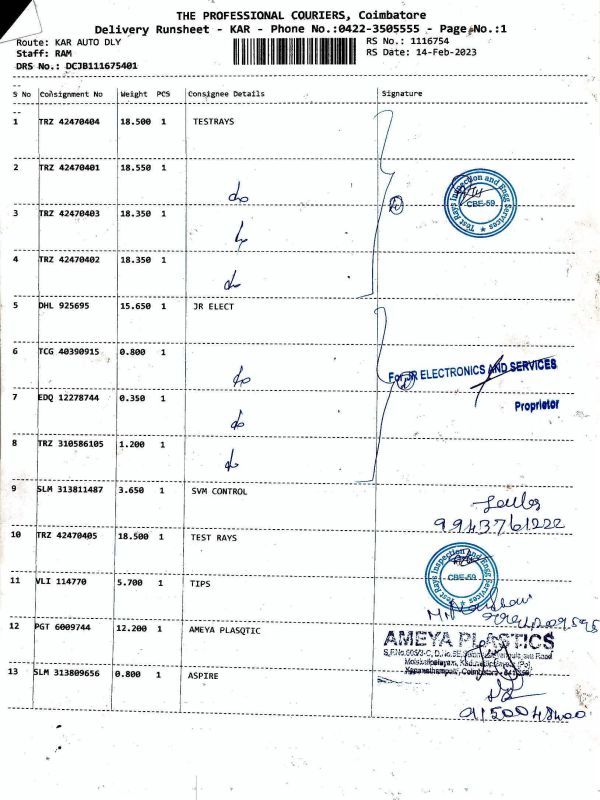 THE PROFESSIONAL COURIERS, Coimbatore
Delivery Runsheet - KAR - Phone No.:0422-3505555 - Page No.:1
Route: KAR AUTO DLY
RS No.: 1116754
Staff: RAM
RS Date: 14-Feb-2023
DRS No.: DCJB111675401
S No Consignment No Weight PCS Consignee Details Signature
1 TRZ 42470404 18.500 1 TESTRAYS
2 TRZ 42470401 18.550 1
do
Test Rays Inspection and Engg Services
CBE-59.
3 TRZ 42470403 18.350 1
4 TRZ 42470402 18.350 1
do
5 DHL 925695 15.650 1 JR ELECT
6 TCG 40390915 0.800 1
do
For JR ELECTRONICS AND SERVICES
7 EDQ 12278744 0.350 1
Proprietor
do
8 TRZ 310586105 1.200 1
do
9 SLM 313811487 3.650 1 SVM CONTROL
9943761222
10 TRZ 42470405 18.500 1 TEST RAYS
Test Rays Inspection and Engg Services
CBE-59
11 VLI 114770 5.700 1 TIPS
12 PGT 6009744 12.200 1 AMEYA PLASQTIC
AMEYA PLASTICS
13 SLM 313809656 0.800 1 ASPIRE